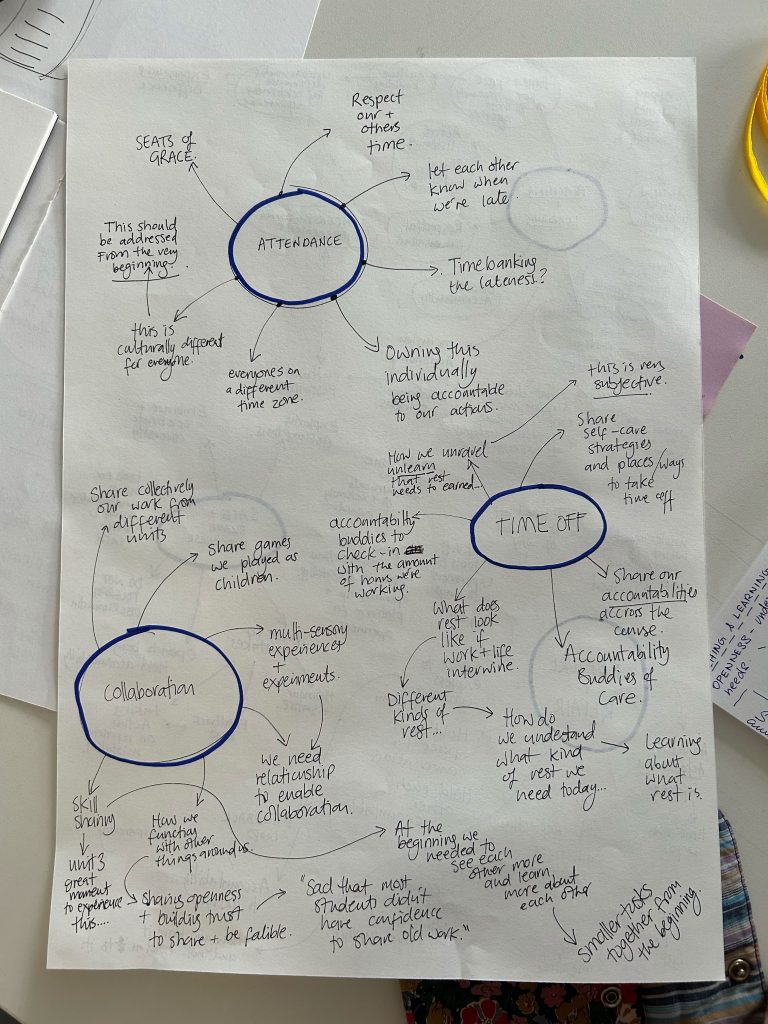 SEATS OF
GRACE.
Respect
our +
others
time.
let each other
know when
we're late.
This should
be addressed
From the very
beginning.
ATTENDANCE
Timebanking
the lateness?
this is
culturally different
for everyone.
everyones on
a different
time zone.
Owning this
individually
being accountable
to our actions.
this is very
subjective.
How we unravel
unlearn
that rest
needs to earned...
Share
self-care
strategies
and places/ways
to take
time off
TIME OFF
accountability
buddies to
check-in
with the amount
of hours we're
working.
What does
rest look
like if
work + life
interwine.
Share our
accountabilities
accross the
course.
Accountability
Buddies of
Care.
Different
kinds of
rest...
How do
we understand
what kind
of rest we
need today...
Learning
about
what
rest is.
Share collectively
our work from
different
units
Share games
we played as
children.
multi-sensory
experiences
+
experiments.
Collaboration
we need
relationship
to enable
collaboration.
Skill
sharing
unit 3
great
moment
to experience
this....
How we
function
with other
things around us.
Sharing openness
+ building trust
to share + be falible.
"Sad that most
students didn't
have confidence
to share old work."
At the
beginning we
needed to
see each
other more
and learn
more about
each other
smaller tasks
together from
the beginning.
& LEARNING
OPENNESS -
needs